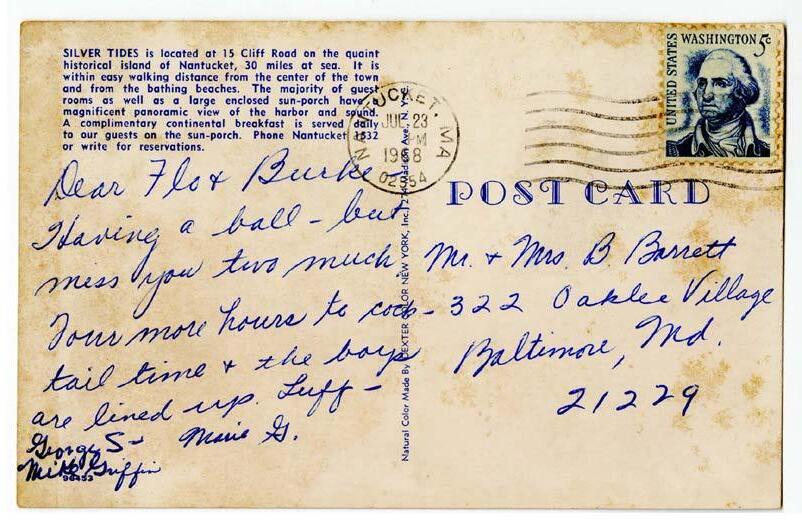 SILVER TIDES is located at 15 Cliff Road on the quaint
historical island of Nantucket, 30 miles at sea. It is
within easy walking distance from the center of the town
and from the bathing beaches. The majority of guest
rooms as well as a large enclosed sun-porch have
magnificent panoramic view of the harbor and sound.
A complimentary continental breakfast is served daily
to our guests on the sun-porch. Phone Nantucket 1632
or write for reservations.
Dear Flo & Burke
Having a ball - but
mess you two much.
Four more hours to cock-
tail time & the boys
are lined up. Luff -
Marie G.
George S-
Mike Griffin
98453
Natural Color Made By DEXTER COLOR NEW YORK, Inc.
Madison Ave., N.Y.
NANTUCKET, MA
JUL 23
PM
1968
02554
UNITED STATES
WASHINGTON 5c
POST CARD
Mr. & Mrs. B. Barrett
322 Oaklee Village
Baltimore, Md.
21229